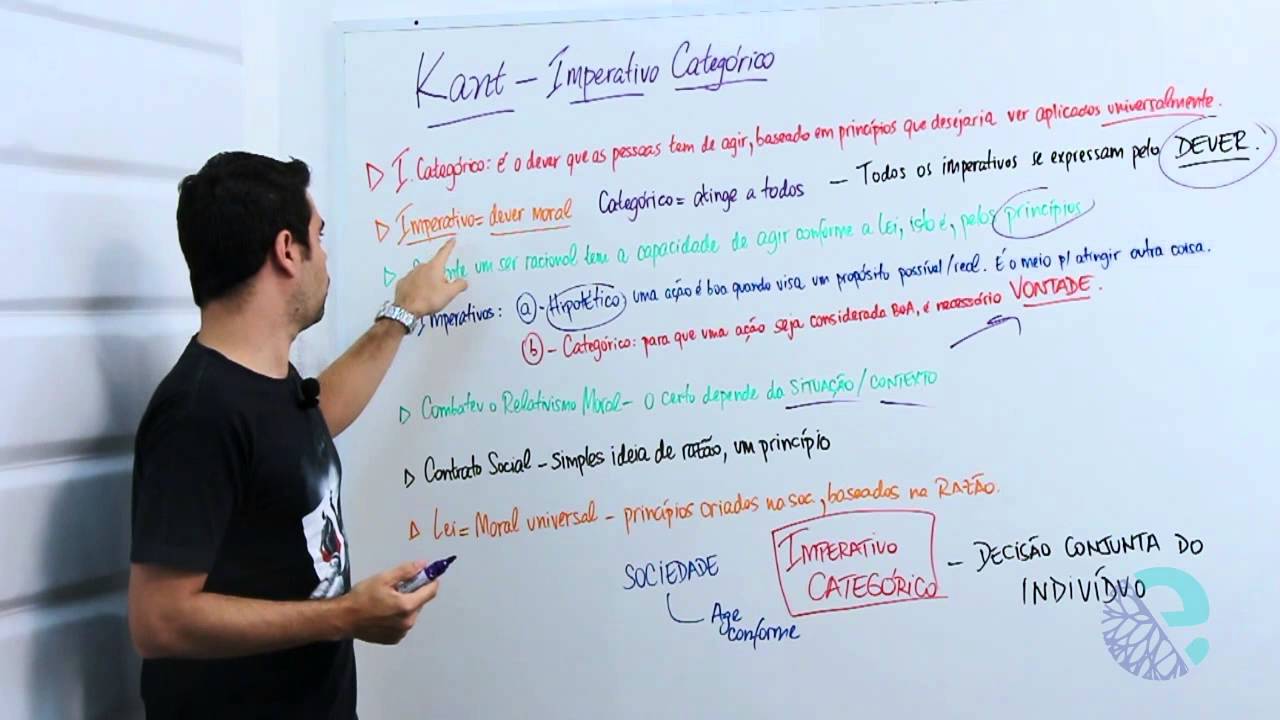 Kant – Imperativo Categórico
▷ I. Categórico: é o dever que as pessoas tem de agir, baseado em princípios que desejaria ver aplicados universalmente.
▷ Imperativo = dever moral Categórico = atinge a todos – Todos os imperativos se expressam pelo DEVER.
▷ um ser racional tem a capacidade de agir conforme a Lei, isto é, pelos princípios
Imperativos: (a) - Hipotético, uma ação é boa quando visa um propósito possível/real. É o meio p/ atingir outra coisa.
(b) - Categórico: para que uma ação seja considerada BOA, é necessário VONTADE.
▷ Combateu o Relativismo Moral – o certo depende da SITUAÇÃO/CONTEXTO
▷ Contrato Social – simples ideia de razão, um princípio
▷ Lei = Moral universal – princípios criados na soc., baseados na RAZÃO.
SOCIEDADE
Age conforme
IMPERATIVO CATEGÓRICO – DECISÃO CONJUNTA DO INDIVÍDUO